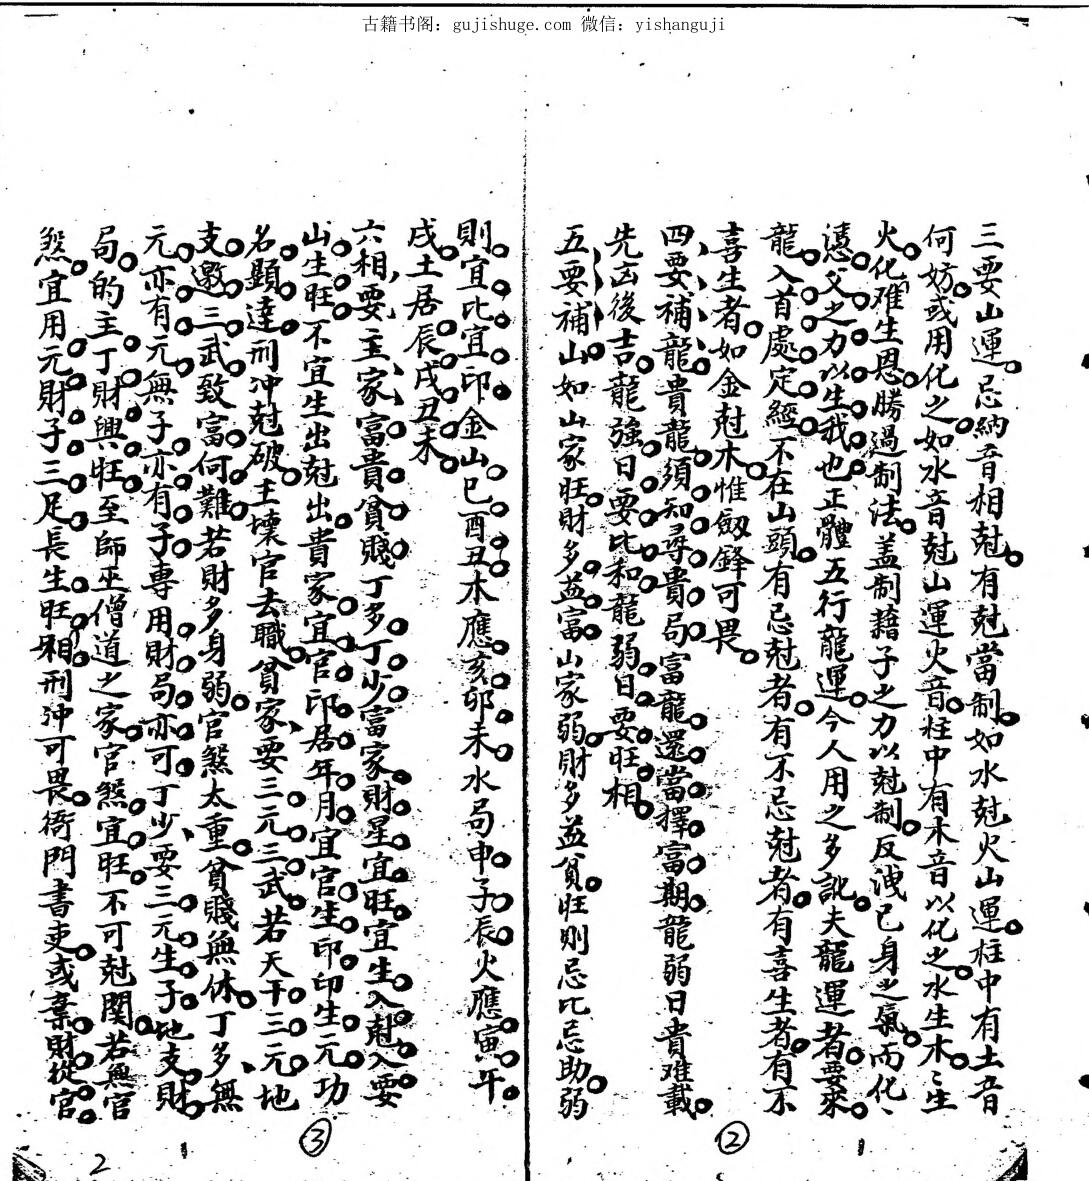 古籍书阁：gujishuge.com 微信：yishanguji
三要山運忌納音相尅有尅當制如水尅火山運柱中有土音
何妨或用化之如水音尅山運火音柱中有木音以化之水生木〻生
火化难生恩勝過制法盖制藉子之力以尅制反洩已身之氣而化〻
慿父之力以生我也正體五行龍運今人用之多訛夫龍運者要來
龍入首處定經不在山頭有忌尅者有不忌尅者有喜生者有不
喜生者如金尅木惟劔鋒可畏
四要補龍貴龍須知尋貴局富龍還當擇富期龍弱日貴难載
先凶後吉龍強日要比和龍弱日要旺相
五要補山如山家旺財多益富山家弱財多益貧旺則忌比忌助弱
②
則宜比宜印金山巳酉丑木應亥卯未水局申子辰火應寅午
戌土居辰戌丑未
六相要主家富貴貧賤丁多丁少富家財星宜旺宜生入尅入要
山生旺不宜生出尅出貴家宜官印居年月宜官生印印生元功
名顯達刑冲尅破主壞官去職貧家要三元三武若天干三元地
支邀三武致富何難若財多身弱官煞太重貧賤無休丁多無
元亦有元無子亦有子專用財局亦可丁少要三元生子地支財
局的主丁財興旺至師巫僧道之家官煞宜旺不可尅関若無官
煞宜用元財子三足長生旺相刑冲可畏衙門書吏或棄財從官
③
2